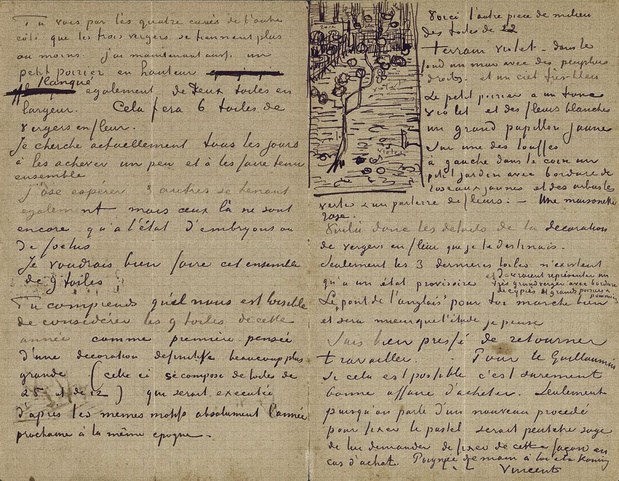 Tu vois par les quatre carrés de l'autre
côté que les trois vergers se tiennent plus
ou moins. j'ai maintenant aussi un
petit poirier en hauteur
flanqué également de deux toiles en
largeur. Cela fera 6 toiles de
vergers en fleur.
Je cherche actuellement tous les jours
à les achever un peu et à les faire tenir
ensemble
J'ose espérer 3 autres se tenant
également mais ceux là ne sont
encore qu'à l'état d'embryons ou
de foetus
Je voudrais bien faire cet ensemble
de 9 toiles
Tu comprends qu'il nous est loisible
de considérer les 9 toiles de cette
année comme première pensée
d'une décoration définitive beaucoup plus
grande (celle ci se compose de toiles de
25 et de 12) qui serait executée
d'après les mêmes motifs absolument l'année
prochaine à la même epoque.
Voici l'autre pièce de milieu
des toiles de 12
terrain violet – dans le
fond un mur avec des peupliers
droits et un ciel très bleu
Le petit poirier a un tronc
violet et des fleurs blanches
un grand papillon jaune
sur une des touffes
à gauche dans le coin un
petit jardin avec bordure de
roseaux jaunes et des arbustes
verts & un parterre de fleurs – Une maisonnette
rose.
Voilà donc les details de la décoration
de vergers en fleur que je te destinais.
Seulement les 3 dernieres toiles n'existent
qu'a un état provisoire et devraient représenter un
très grand verger avec bordure
de cyprès et grands poiriers &
pommiers
Le "pont de l'anglais" pour toi marche bien
et sera mieux que l'étude je pense
Suis bien pressé de retourner
travailler. Pour le Guillaumin
si cela est possible c'est surement
bonne affaire d'acheter. Seulement
puisqu'on parle d'un nouveau procédé
pour fixer le pastel serait peutetre sage
de lui demander de fixer de cette façon en
cas d'achat. Poignée de main à toi et à Koning
Vincent